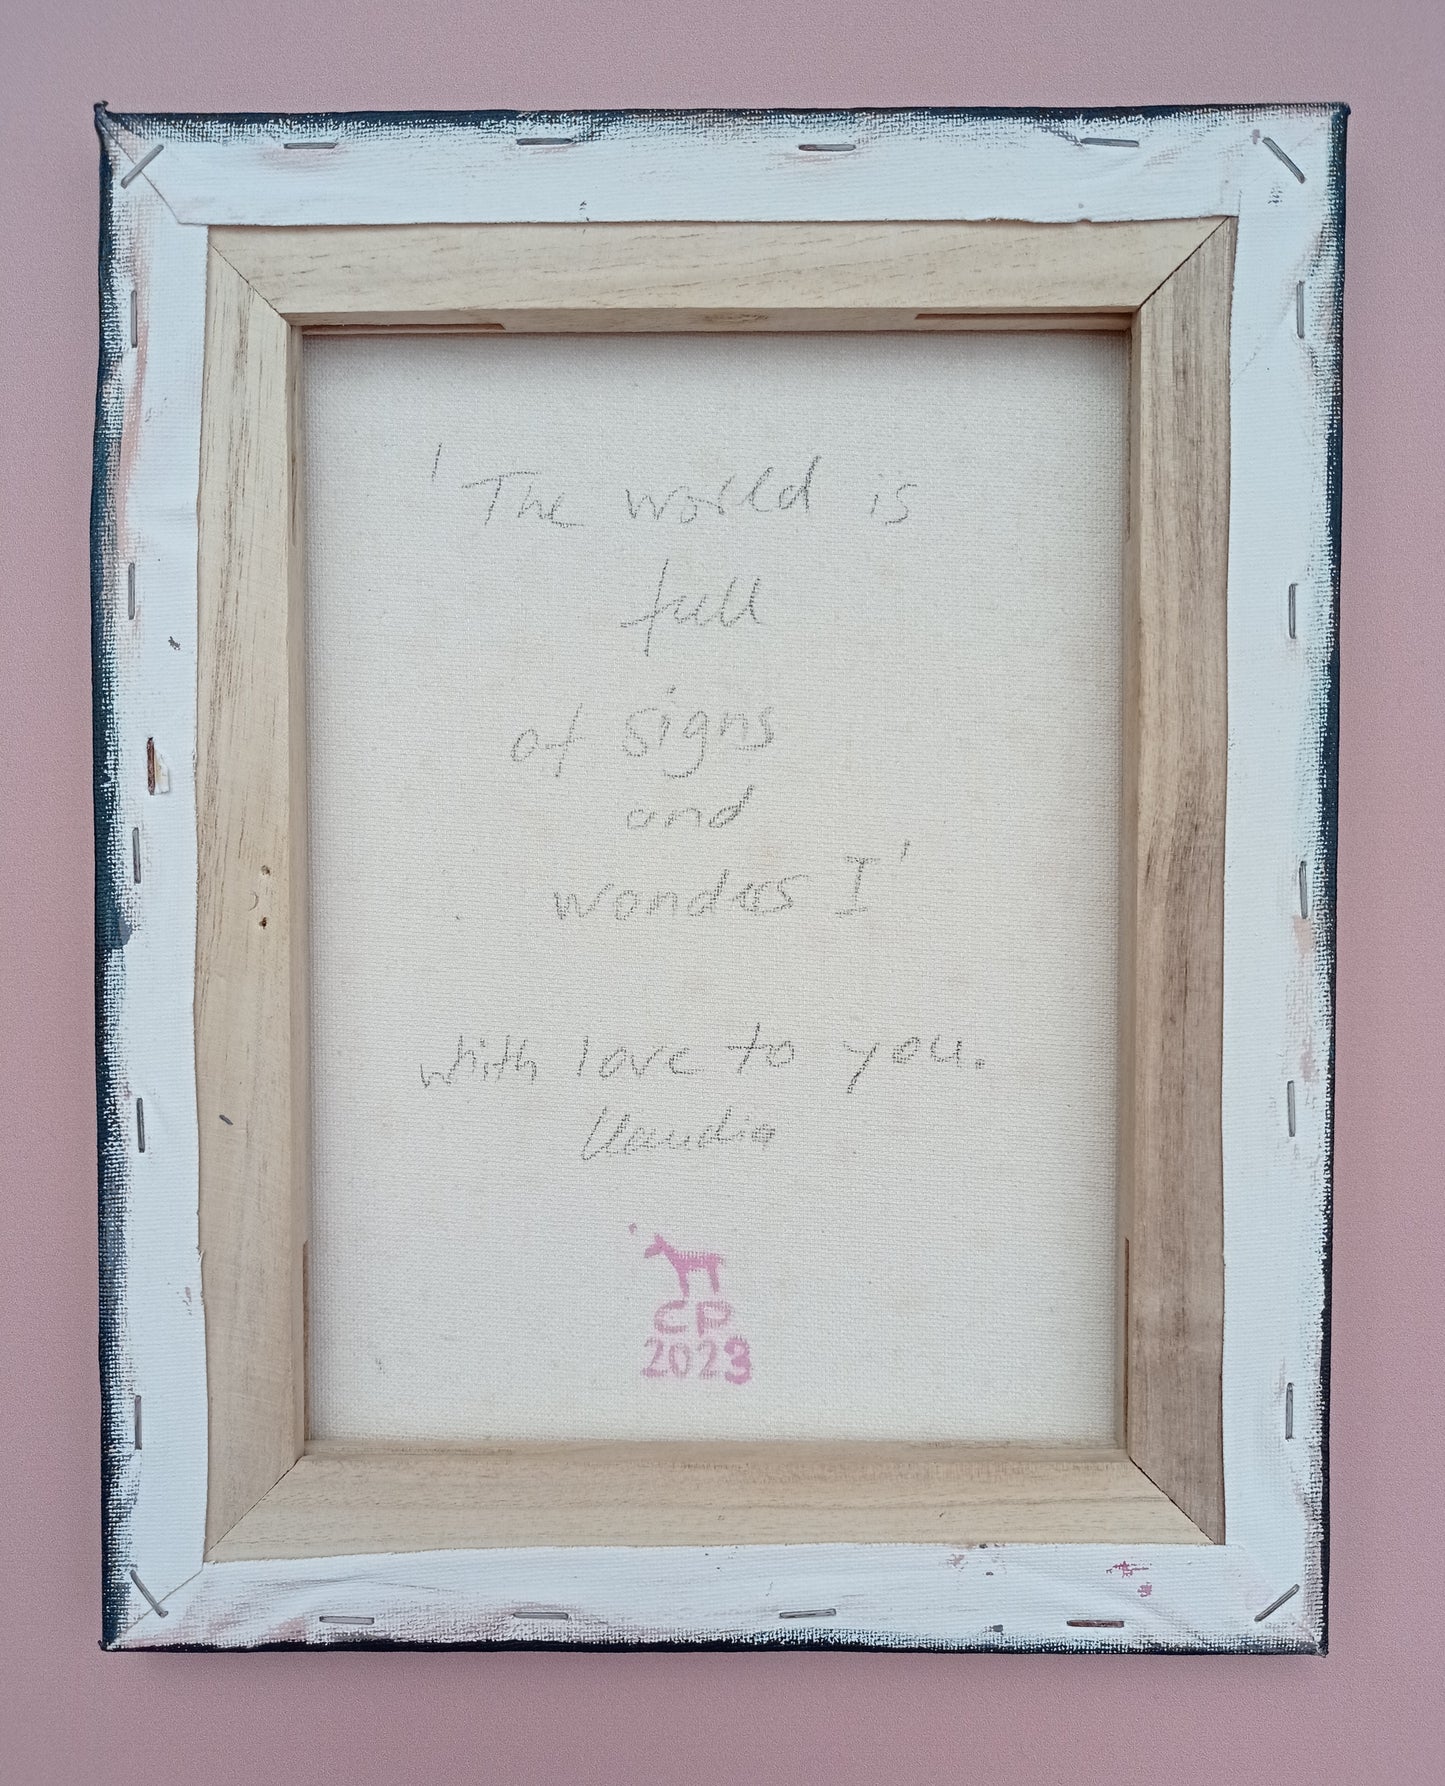 'The world is
full
of signs
and
wonders I'
with love to you.
Claudia
CP
2023